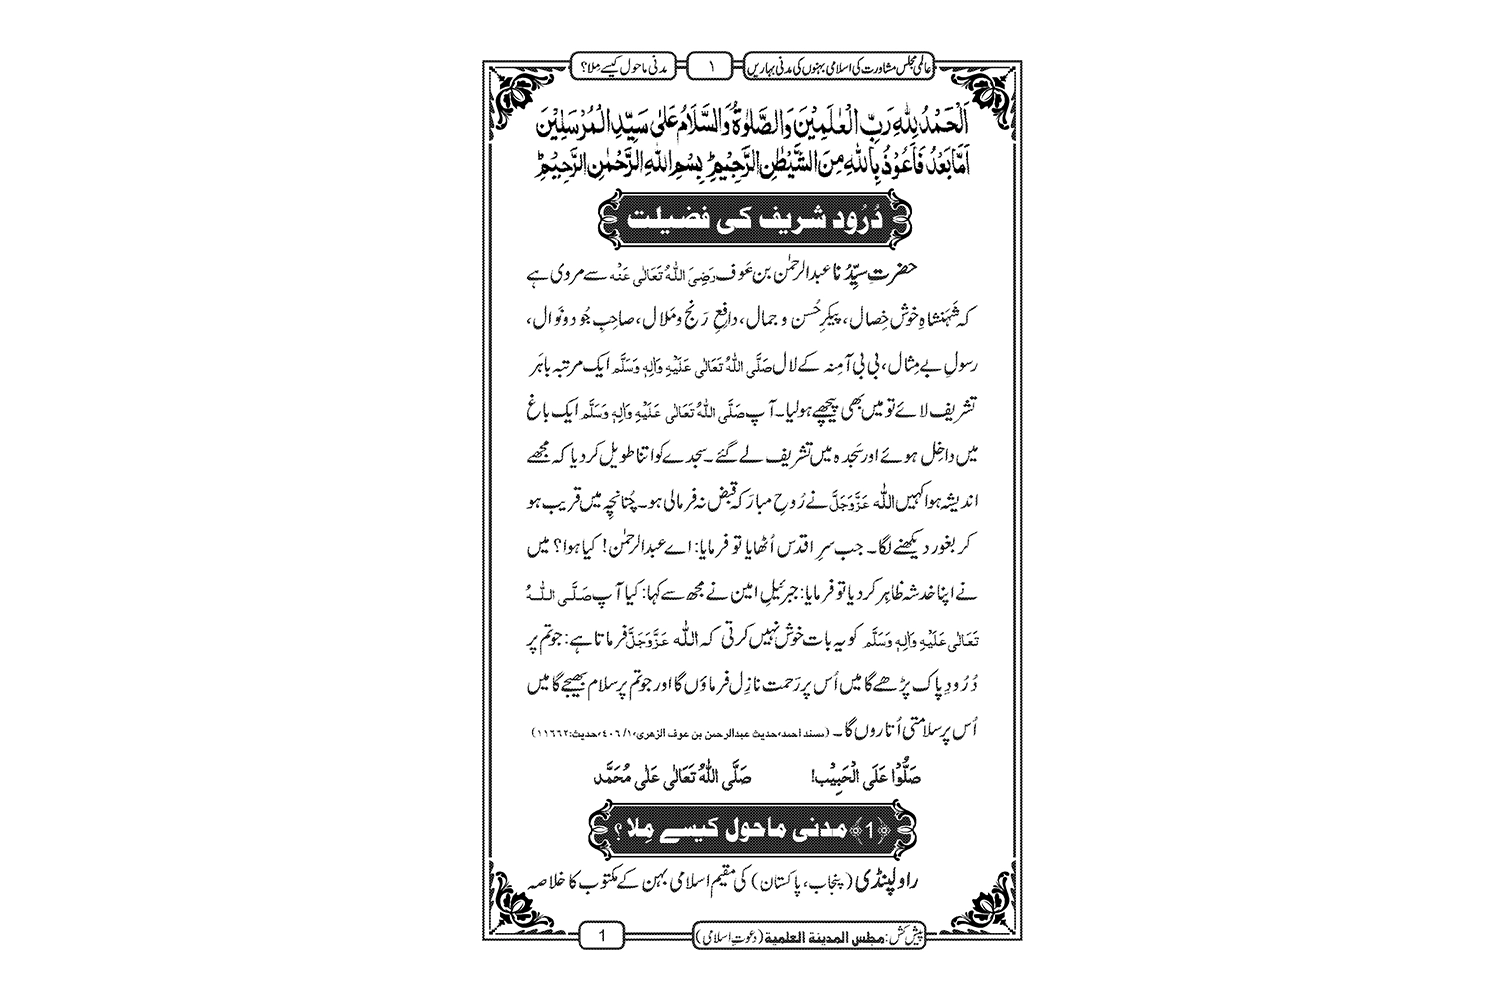 عالمی مجلس مشاورت کی اسلامی بہنوں کی مدنی بہاریں ۱ مدنی ماحول کیسے مِلا؟
اَلْحَمْدُ لِلّٰهِ رَبِّ الْعٰلَمِيْنَ وَالصَّلٰوةُ وَالسَّلَامُ عَلٰى سَيِّدِ الْمُرْسَلِيْنَ
اَمَّا بَعْدُ فَاَعُوْذُ بِاللّٰهِ مِنَ الشَّيْطٰنِ الرَّجِيْمِ ؕ بِسْمِ اللّٰهِ الرَّحْمٰنِ الرَّحِيْمِ ؕ
دُرُود شریف کی فضیلت
حضرتِ سیِّدُنا عبدالرحمٰن بن عَوف رَضِیَ اللّٰهُ تَعَالٰی عَنْه سے مروی ہے
کہ شَہَنشاہِ خوش خِصال، پیکرِ حُسن و جمال، دافِعِ رَنج و مَلال، صاحبِ جُود و نَوال،
رسولِ بے مِثال، بی بی آمِنہ کے لال صَلَّى اللّٰهُ تَعَالٰى عَلَيْهِ وَاٰلِهٖ وَسَلَّم ایک مرتبہ باہَر
تشریف لائے تو میں بھی پیچھے ہولیا۔ آپ صَلَّى اللّٰهُ تَعَالٰى عَلَيْهِ وَاٰلِهٖ وَسَلَّم ایک باغ
میں داخِل ہوئے اور سَجدہ میں تشریف لے گئے۔ سجدے کو اتنا طویل کردیا کہ مجھے
اندیشہ ہوا کہیں اللّٰه عَزَّوَجَلَّ نے رُوحِ مبارَکہ قبض نہ فرمالی ہو۔ چُنانچِہ میں قریب ہو
کر بغور دیکھنے لگا۔ جب سرِ اقدس اُٹھایا تو فرمایا: اے عبدالرحمٰن! کیا ہوا؟ میں
نے اپنا خدشہ ظاہِر کردیا تو فرمایا: جبرئیلِ امین نے مجھ سے کہا: کیا آپ صَلَّى اللّٰهُ
تَعَالٰى عَلَيْهِ وَاٰلِهٖ وَسَلَّم کو یہ بات خوش نہیں کرتی کہ اللّٰه عَزَّوَجَلَّ فرماتا ہے: جو تم پر
دُرُودِ پاک پڑھے گا میں اُس پر رَحمت نازِل فرماؤں گا اور جو تم پر سلام بھیجے گا میں
اُس پر سلامتی اُتاروں گا۔ (مسند احمد، حدیث عبدالرحمن بن عوف الزهری، ۱/۴۰۶، حدیث:۱۶۶۲)
صَلُّوْا عَلَى الْحَبِيْب! صَلَّى اللّٰهُ تَعَالٰى عَلٰى مُحَمَّد
﴿1﴾ مدنی ماحول کیسے مِلا؟
راولپنڈی (پنجاب، پاکستان) کی مقیم اسلامی بہن کے مکتوب کا خلاصہ
پیش کش: مجلس المدینة العلمیة (دعوتِ اسلامی) 1